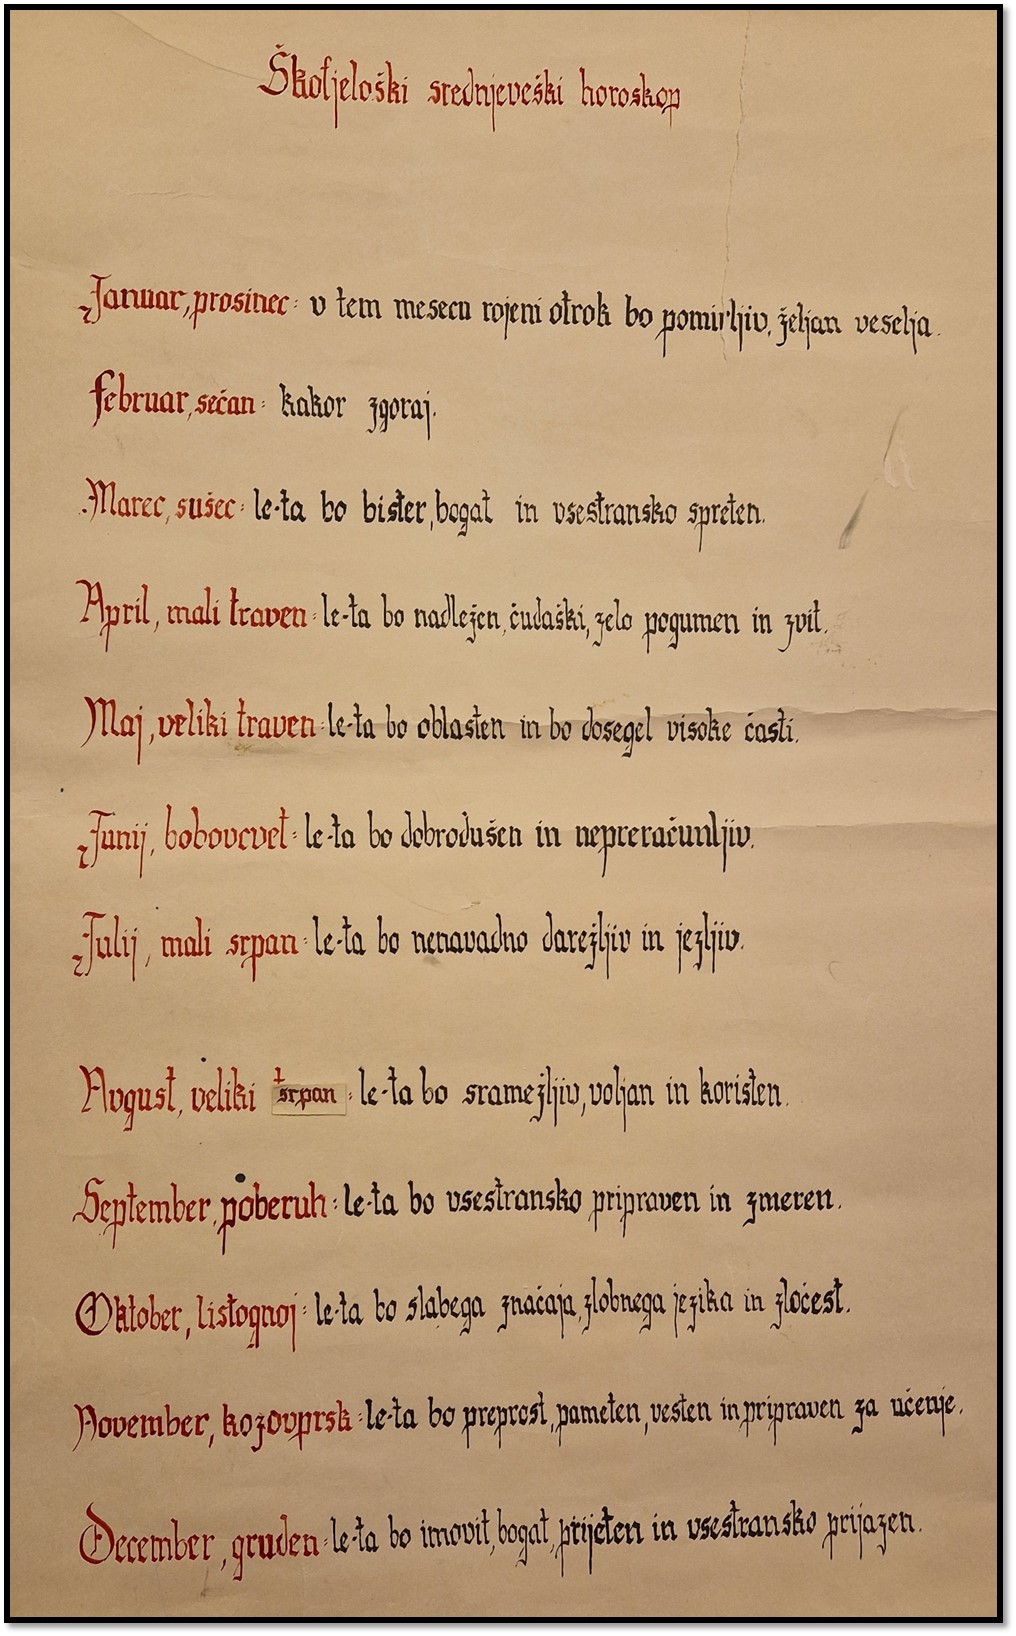 Škofjeloški srednjeveški horoskop
Januar, prosinec: v tem mesecu rojeni otrok bo pomirljiv, željan veselja.
Februar, sečan: kakor zgoraj.
Marec, sušec: le-ta bo bister, bogat in vsestransko spreten.
April, mali traven: le-ta bo nadležen, čudaški, zelo pogumen in zvit.
Maj, veliki traven: le-ta bo oblasten in bo dosegel visoke časti.
Junij, bobovcvet: le-ta bo dobrodušen in nepreračunljiv.
Julij, mali srpan: le-ta bo nenavadno darežljiv in jezljiv.
Avgust, veliki srpan: le-ta bo sramežljiv, voljan in koristen.
September, poberuh: le-ta bo vsestransko pripraven in zmeren.
Oktober, listognoj: le-ta bo slabega značaja, zlobnega jezika in zločest.
November, kozovprsk: le-ta bo preprost, pameten, vesten in pripraven za učenje.
December, gruden: le-ta bo imovit, bogat, prijeten in vsestransko prijazen.